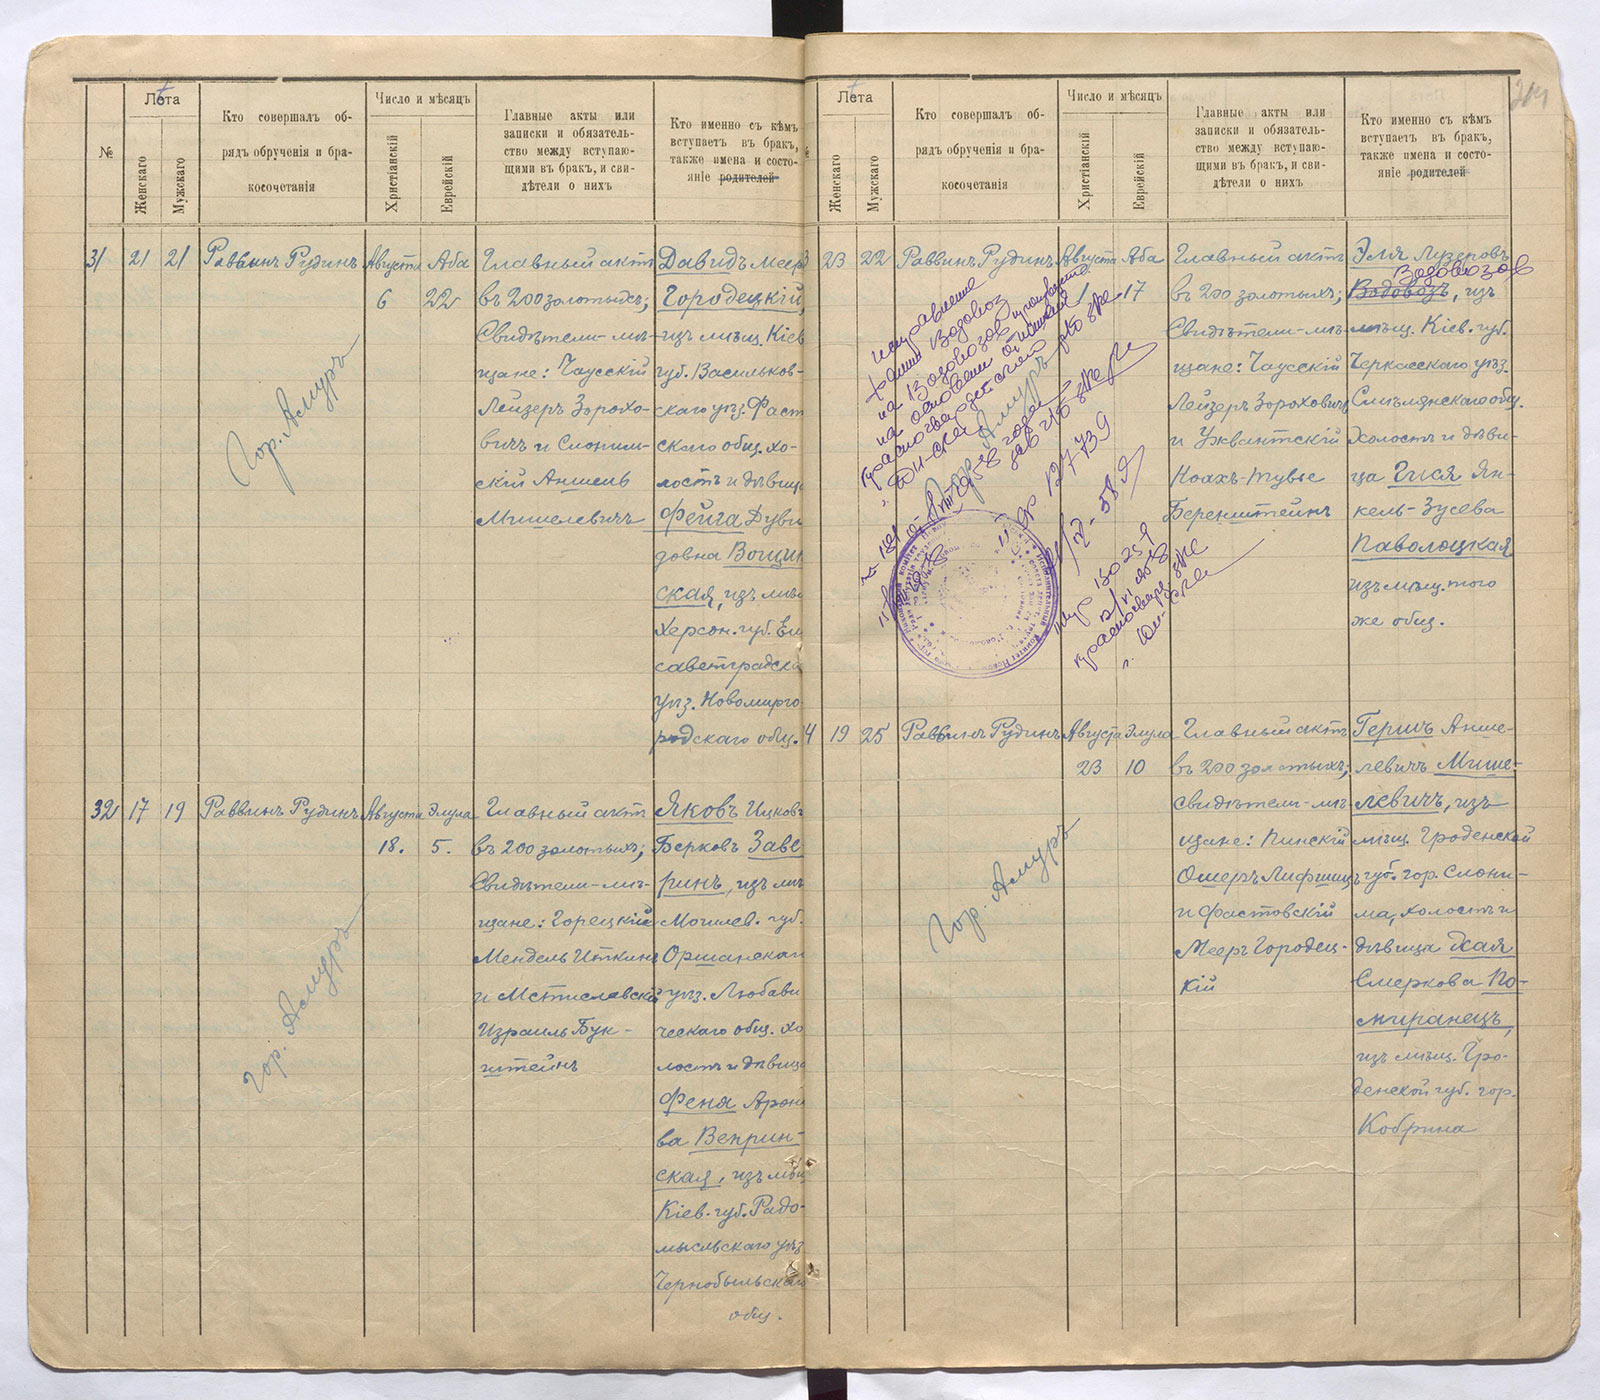 №
Лѣта
Женскаго
Мужскаго
Кто совершалъ об-
рядъ обрученія и бра-
косочетанія
Число и мѣсяцъ
Христіанскій
Еврейскій
Главные акты или
записки и обязатель-
ство между вступаю-
щими въ бракъ, и сви-
дѣтели о нихъ
Кто именно съ кѣмъ
вступаетъ въ бракъ,
также имена и состо-
яніе родителей
31
21
21
Раввинъ Рудинъ
Августа
6
Аба
22
Главный актъ
въ 200 золотыхъ;
Свидѣтели-мѣ-
щане: Чаусскій
Лейзеръ Зорохо-
вичъ и Слоним-
скій Аншель
Мишелевичъ
Давидъ Меер
Городецкій,
изъ мѣщ. Кіев
губ. Васильков-
скаго уѣз. Фаст
скаго общ. хо-
лостъ и дѣвица
Фейга Дуви
довна Вощин
ская, изъ мѣщ
Херсон. губ. Ели
саветградска
уѣз. Новомирго
родскаго общ.
Гор. Амуръ
32
17
19
Раввинъ Рудинъ
Августа
18.
Элула
5.
Главный актъ
въ 200 золотыхъ;
Свидѣтели-мѣ-
щане: Горецкій
Мендель Иткинъ
и Мстиславскій
Израиль Бук-
штейнъ
Яковъ Ицковъ
Берковъ Заве
ринъ, изъ мѣщ
Могилев. губ.
Оршанскаг
уѣз. Любави
ческаго общ. хо
лостъ и дѣвица
Феня Арон
ва Веприн-
ская, изъ мѣщ
Кіев. губ. Радо-
мысльскаго уѣз
Чернобыльскаг
общ.
Гор. Амуръ
Лѣта
Женскаго
Мужскаго
Кто совершалъ об-
рядъ обрученія и бра-
косочетанія
Число и мѣсяцъ
Христіанскій
Еврейскій
Главные акты или
записки и обязатель-
ство между вступаю-
щими въ бракъ, и сви-
дѣтели о нихъ
Кто именно съ кѣмъ
вступаетъ въ бракъ,
также имена и состо-
яніе родителей
3
23
22
Раввинъ Рудинъ
Августа
1
Аба
17
Главный актъ
въ 200 золотыхъ;
Свидѣтели-мѣ-
щане: Чаусскій
Лейзеръ Зороховичъ
и Ушвантскій
Ноахъ-Тувье
Беренштейнъ
Эля Лузеровъ
Водовозов
Водовозъ, изъ
мѣщ. Кіев. губ.
Черкасскаго уѣз.
Смѣлянскаго общ.
Холостъ и дѣви-
ца Гися Ян-
кель-Зусева
Паволоцкая
изъ мѣщ. того
же общ.
Гор. Амуръ
исправление
фамил Водовоз
на Водовозов
на основани
4
19
25
Раввинъ Рудинъ
Августа
23
Элула
10
Главный актъ
въ 200 золотыхъ;
свидѣтели-мѣ-
щане: Пинскій
Ошеръ Лифшицъ
и Фастовскій
Мееръ Городец-
кій
Гершъ Анше-
левичъ Мише-
левичъ, изъ
мѣщ. Гроденской
губ. гор. Слони-
ма, холостъ и
дѣвица Хая
Смеркова По-
миранецъ,
изъ мѣщ. Гро-
денской губ. гор.
Кобрина
Гор. Амуръ